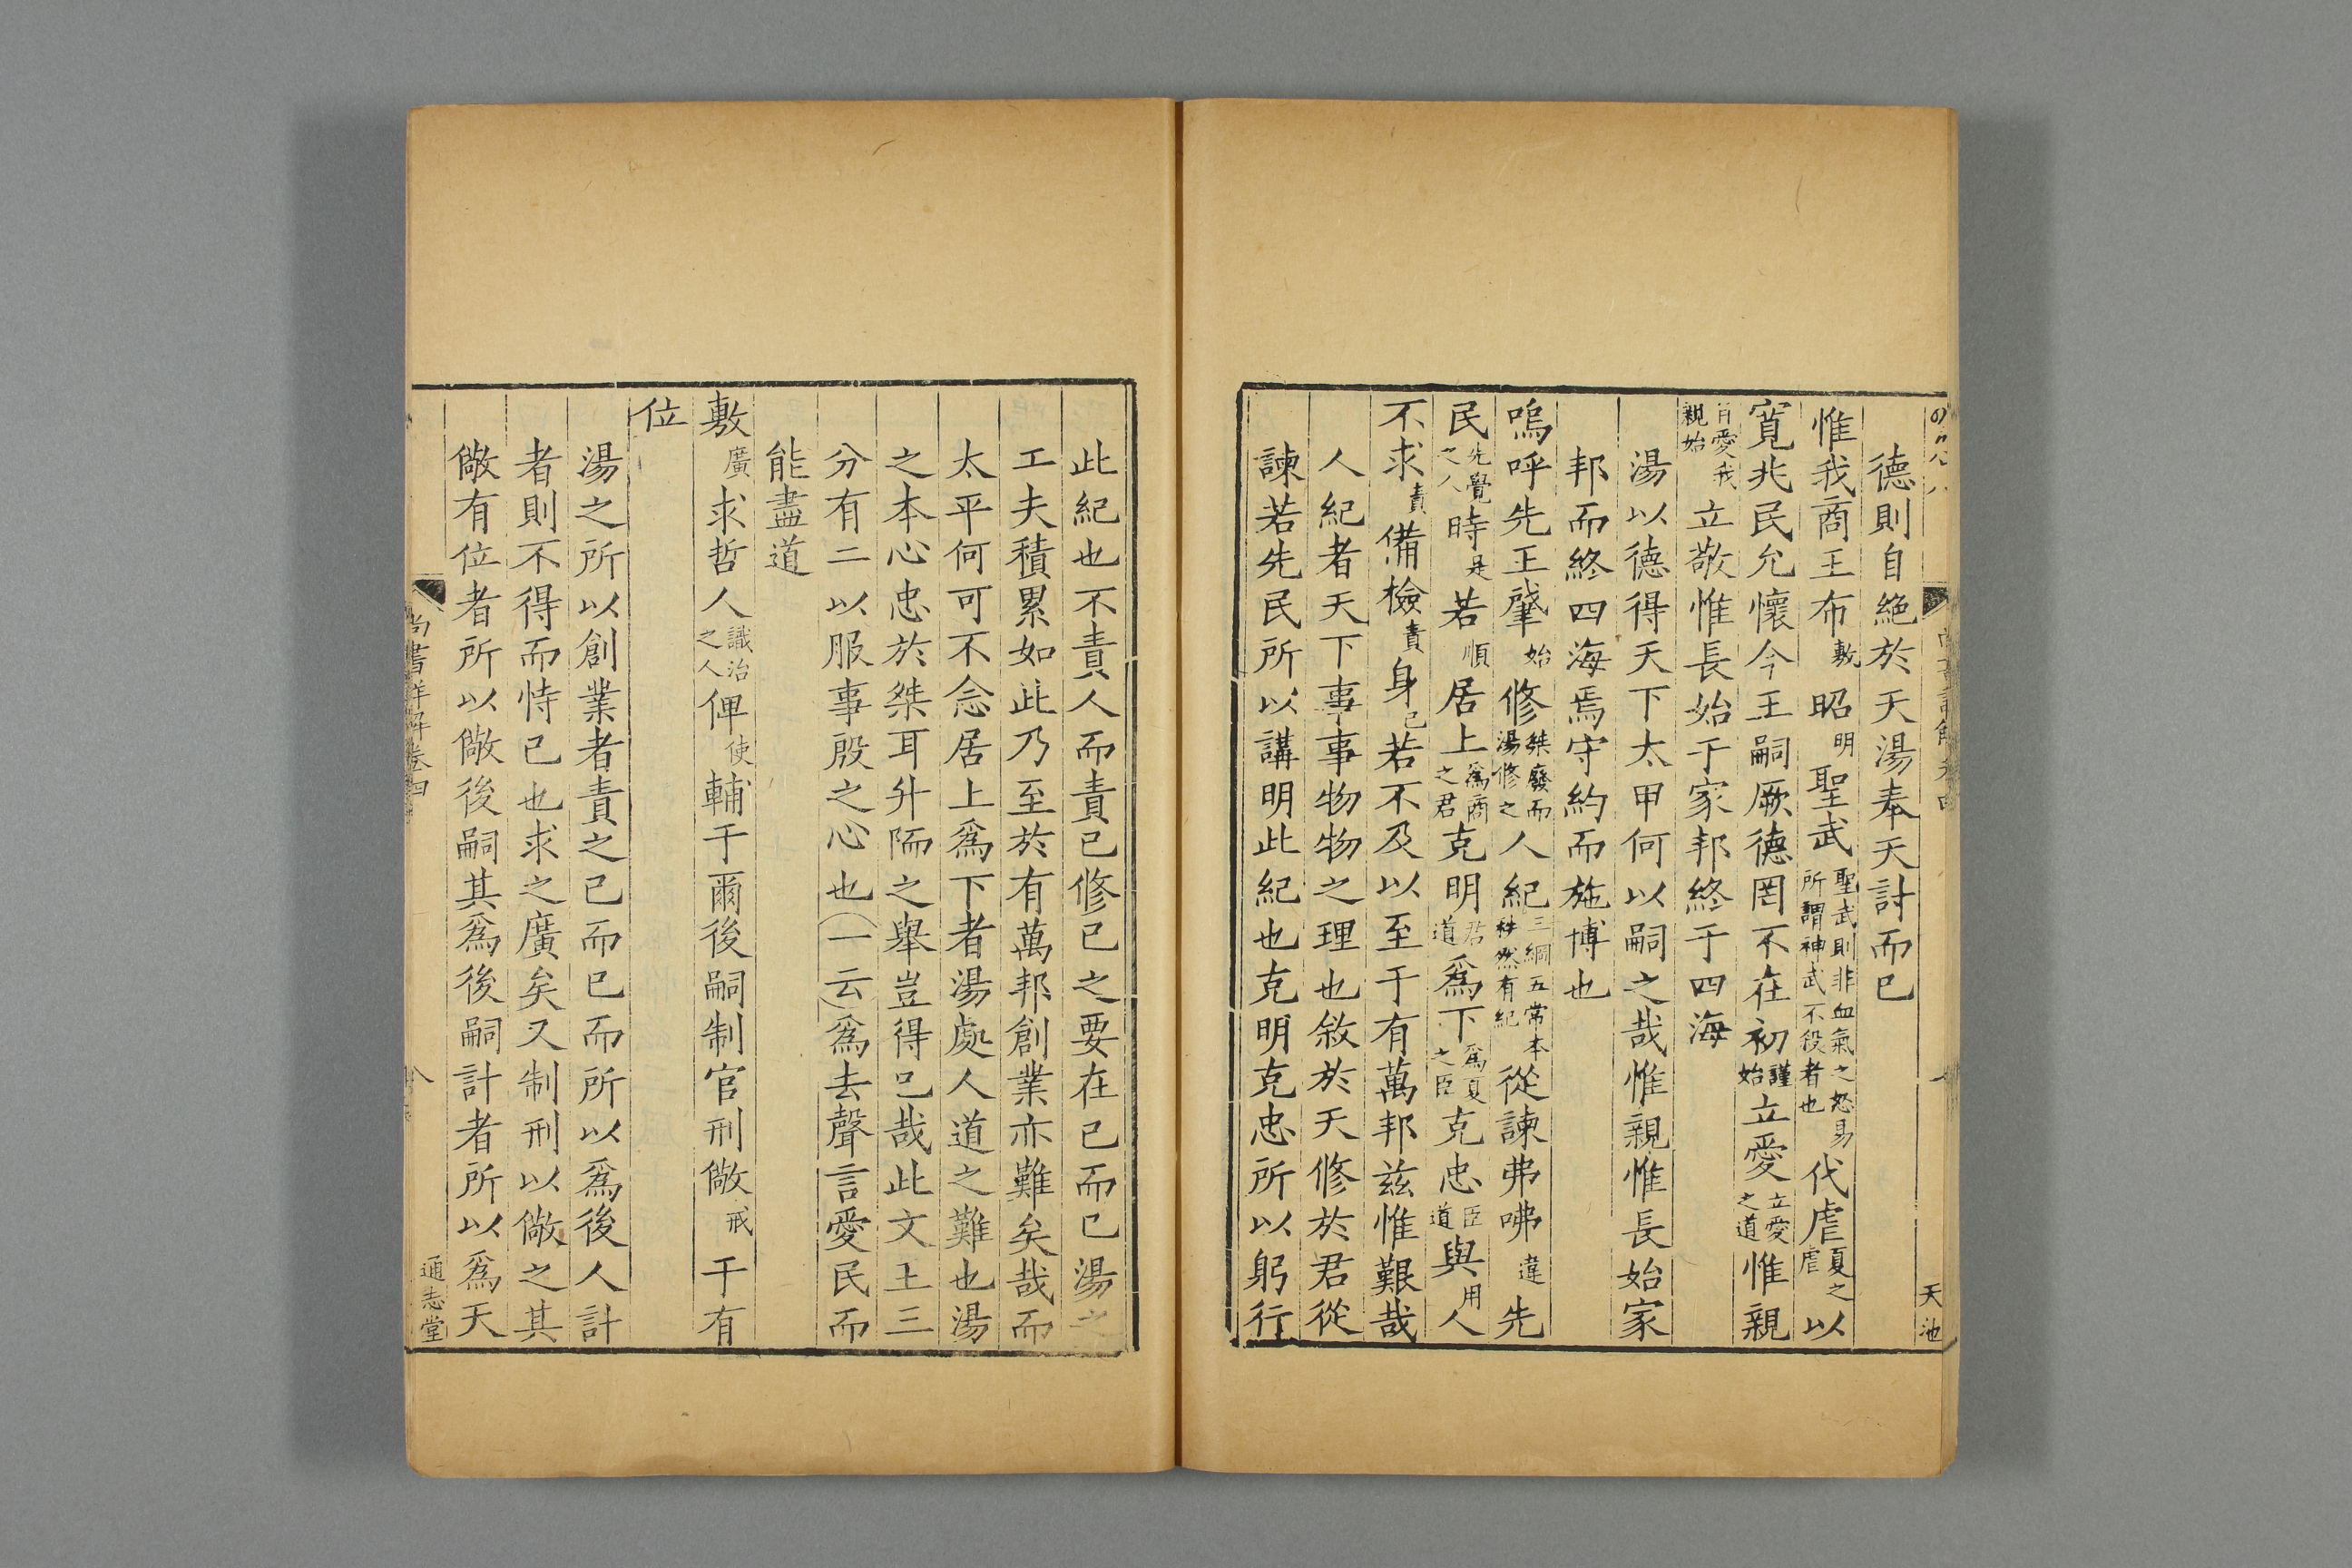 德則自絶於天湯奉天討而已
惟我商王布敷昭明聖武聖武則非血氣之怒易所謂神武不役者也代虐夏之虐以
寬兆民允懷今王嗣厥德罔不在初謹始立愛立愛之道惟親
自愛我親始立敬惟長始于家邦終于四海
湯以德得天下太甲何以嗣之哉惟親惟長始家
邦而終四海焉守約而施博也
嗚呼先王肇始修桀廢而湯修之人紀三綱五常本秩然有紀從諫弗咈違先
民先覺之人時是若順居上為商之君克明君道爲下爲夏之臣克忠臣道與用人
不求責備檢責身己若不及以至于有萬邦兹惟艱哉
人紀者天下事事物物之理也敘於天修於君從
諫若先民所以講明此紀也克明克忠所以躬行
天池
此紀也不責人而責已修已之要在已而已湯之
工夫積累如此乃至於有萬邦創業亦難矣哉而
太平何可不念居上爲下者湯處人道之難也湯
之本心忠於桀耳升陑之舉豈得已哉此文王三
分有二以服事殷之心也一云爲去聲言愛民而
能盡道
敷廣求哲人識治之人俾使輔于爾後嗣制官刑儆戒于有
位
湯之所以創業者責之已而已而所以爲後人計
者則不得而恃已也求之廣矣又制刑以儆之其
儆有位者所以儆後嗣其爲後嗣計者所以爲天
尚書詳解卷四
八
通志堂